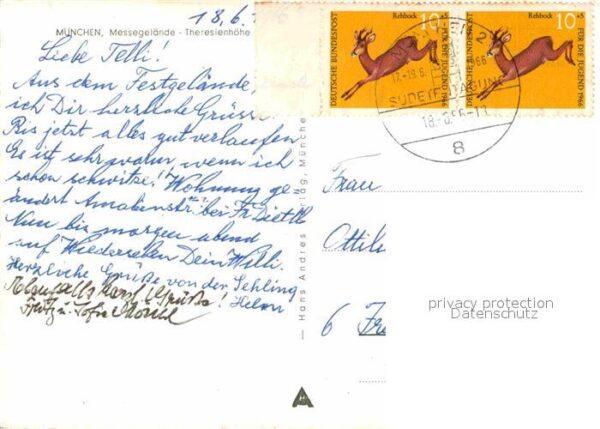 18.6.
MÜNCHEN, Messegelände - Theresienhöhe
Liebe Telli!
Aus dem Festgelände,
ich Dir herzliche Grüsse
Bis jetzt alles gut verlaufen
Es ist sehr wenn ich
schon schwitze! Wohnung ge
ändert bei Fr.
Nun bis morgen abend
auf Wiedersehen Dein Willi.
Herzliche Grüße von der
Ebenfalls
Fritz u. Sofie
Hans Andres Verlag, Münche
DEUTSCHE BUNDESPOST
Rehbock 10+5
FÜR DIE JUGEND 1966
DEUTSCHE BUNDESPOST
Rehbock 10+5
FÜR DIE JUGEND 1966
8
Frau
Ottili
6 Fra
privacy protection
Datenschutz